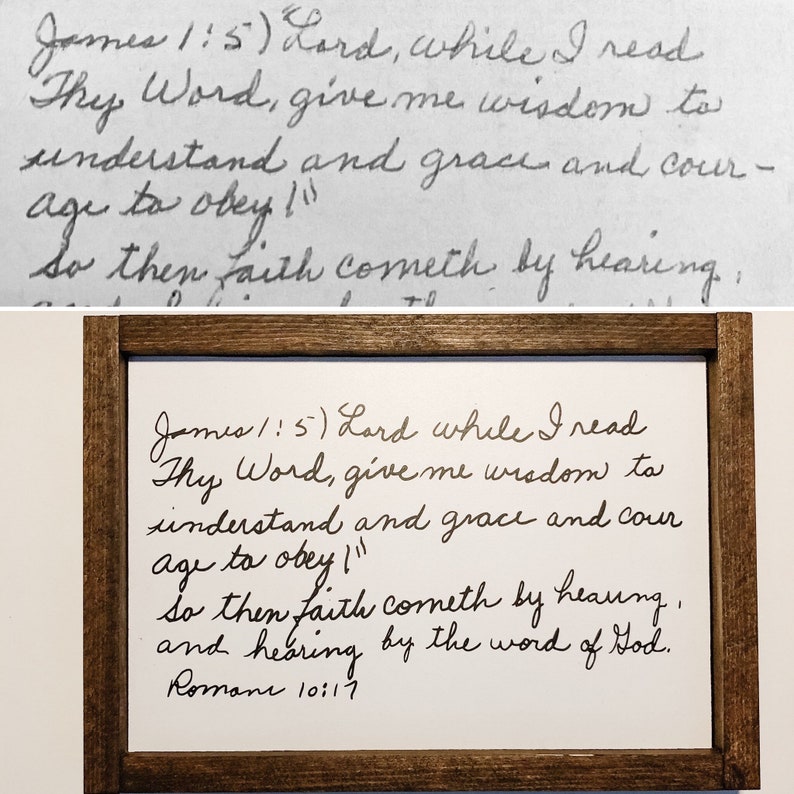 James 1:5) "Lord, while I read
Thy Word, give me wisdom to
understand and grace and cour-
age to obey!"
So then faith cometh by hearing,
James 1:5) "Lord while I read
Thy Word, give me wisdom to
understand and grace and cour
age to obey!"
So then faith cometh by hearing,
and hearing by the word of God.
Romans 10:17